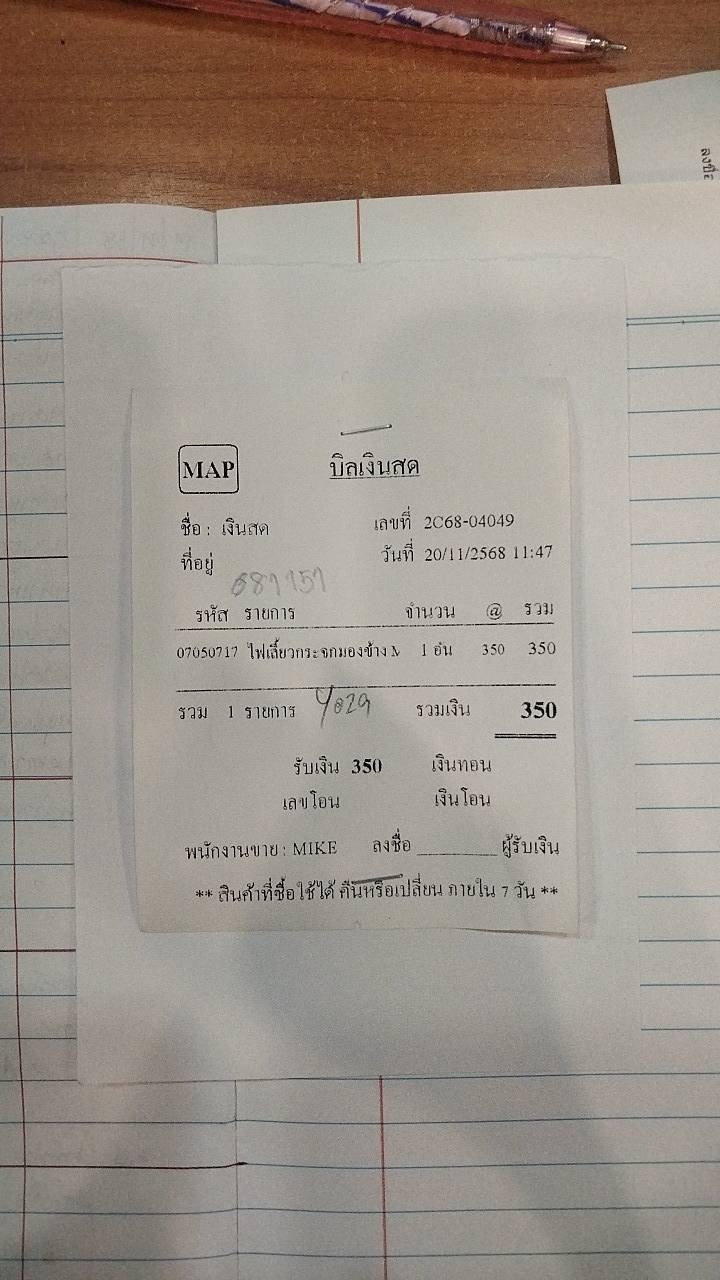 ลงชื่อ
MAP บิลเงินสด
ชื่อ : เงินสด เลขที่ 2C68-04049
ที่อยู่ วันที่ 20/11/2568 11:47
681151
รหัส รายการ จำนวน @ รวม
07050717 ไฟเลี้ยวกระจกมองข้าง M 1 อัน 350 350
รวม 1 รายการ รวมเงิน 350
รับเงิน 350 เงินทอน
เลขโอน เงินโอน
พนักงานขาย : MIKE ลงชื่อ ________ ผู้รับเงิน
** สินค้าที่ซื้อใช้ได้ คืนหรือเปลี่ยน ภายใน 7 วัน **